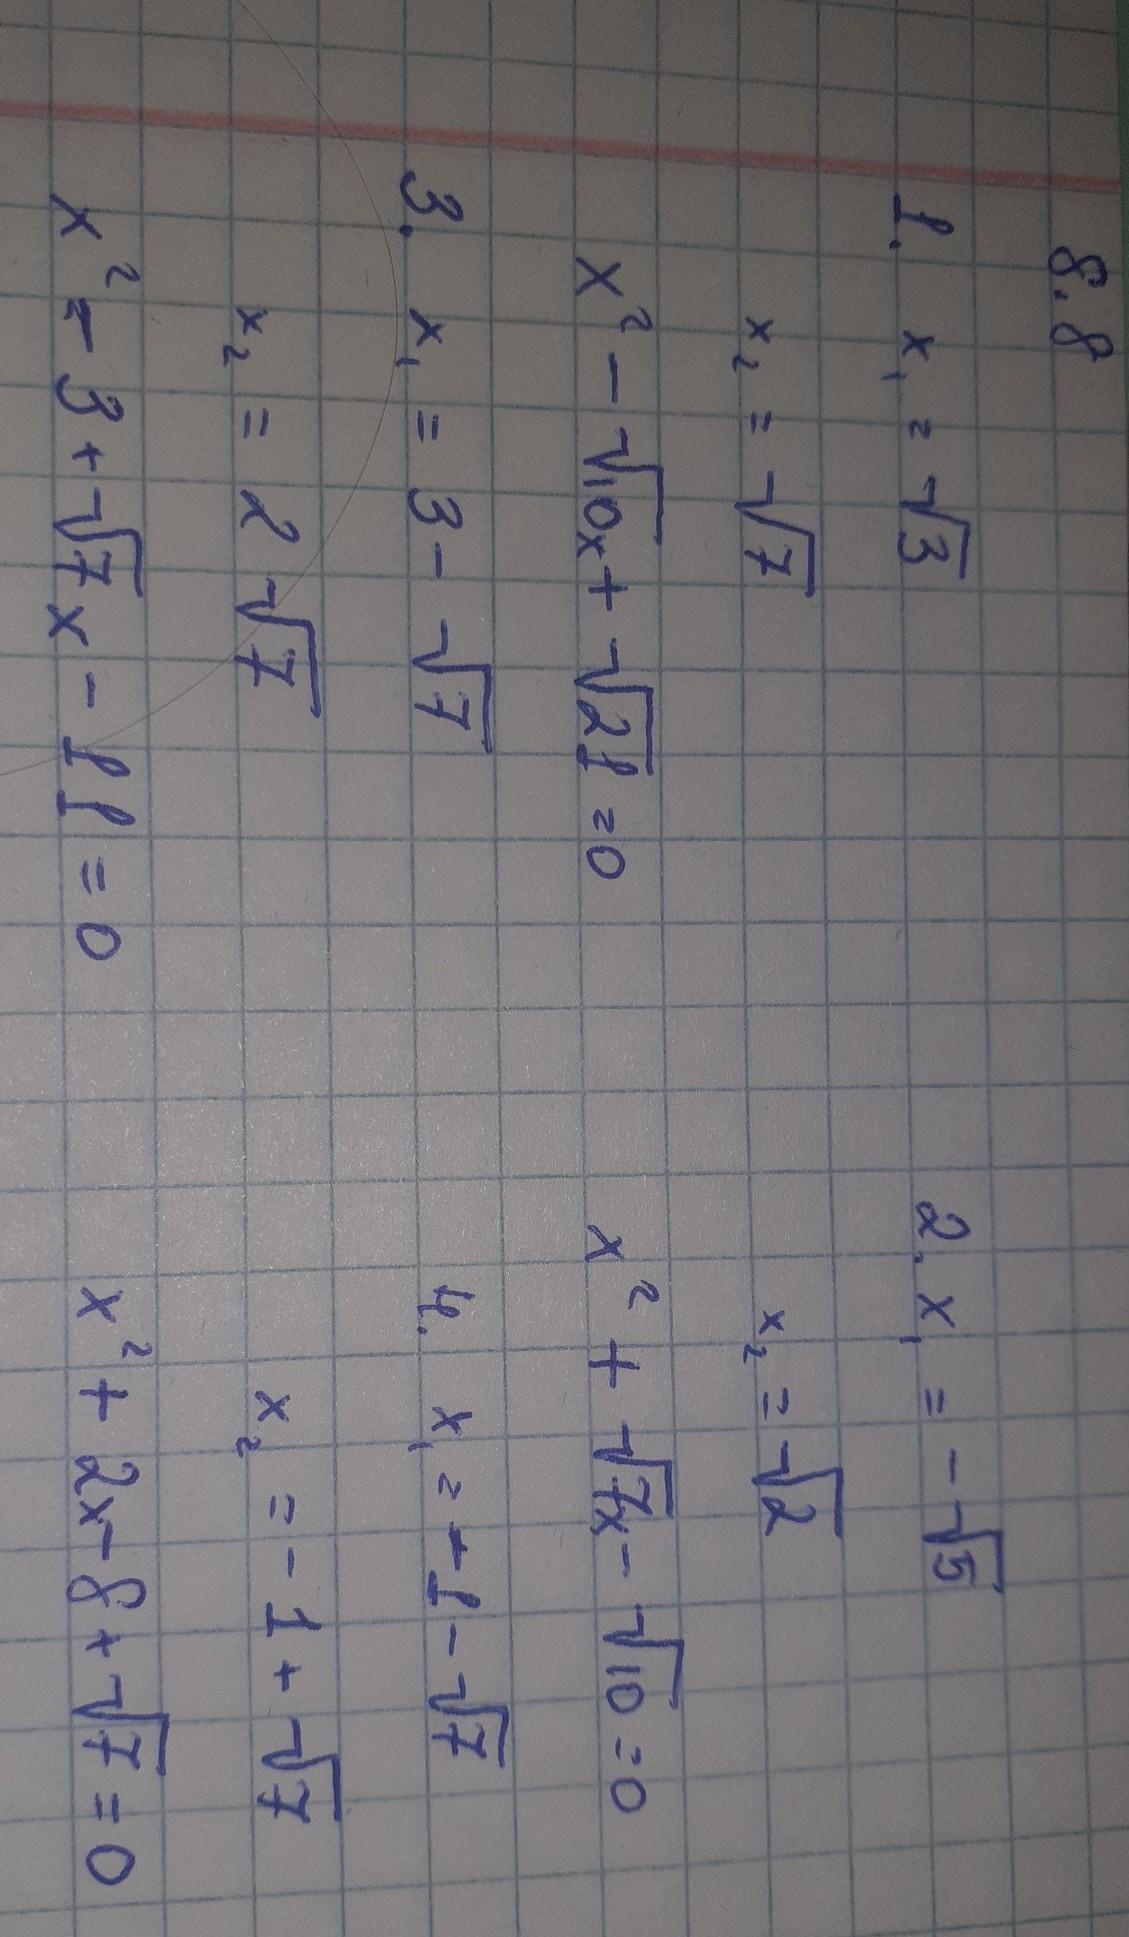 8.8
1. x₁ = √3
x₂ = √7
x² - √10x + √21 = 0
2. x₁ = -√5
x₂ = √2
x² + √7x - √10 = 0
3. x₁ = 3 - √7
x₂ = 2√7
x² - 3 + √7x - 11 = 0
4. x₁ = -1 - √7
x₂ = -1 + √7
x² + 2x - 8 + √7 = 0